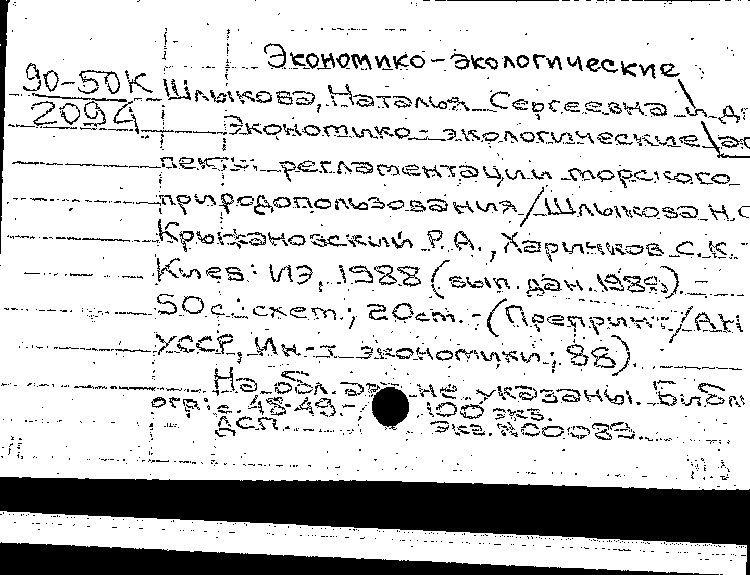 Экономико-экологические
90-50К
2094
Шлыкова, Наталья Сергеевна и др.
Экономико-экологические ас
пекты регламентации морского
природопользования/Шлыкова Н.С
Крыжановский Р.А., Харичков С.К. -
Киев: ИЭ, 1988 (вып. дан. 1989). -
50с.: схем.; 20см. - (Препринт/АН
УССР, Ин-т экономики; 88).
На обл. авт. не указаны. Библи
огр: с. 48-49. - 100 экз.
ДСП. Экз. №00089.